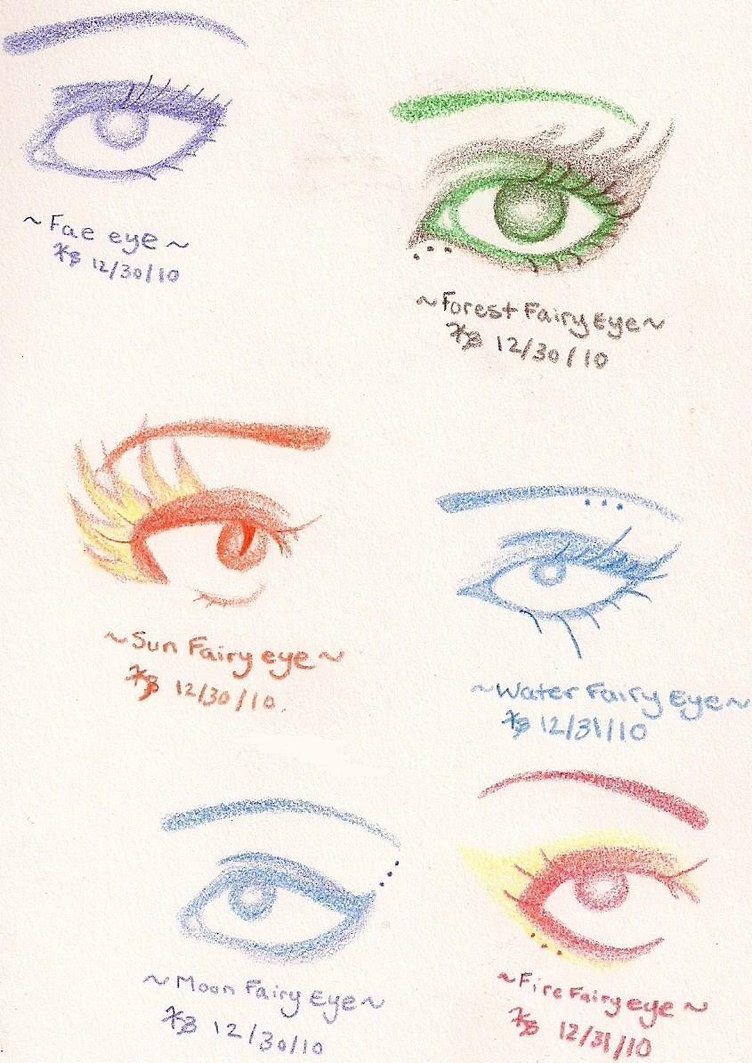 ~Fae eye~
12/30/10
~Forest Fairy Eye~
12/30/10
~Sun Fairy eye~
12/30/10.
~Water Fairy Eye~
12/31/10
~Moon Fairy Eye~
12/30/10
~Fire Fairy eye~
12/31/10